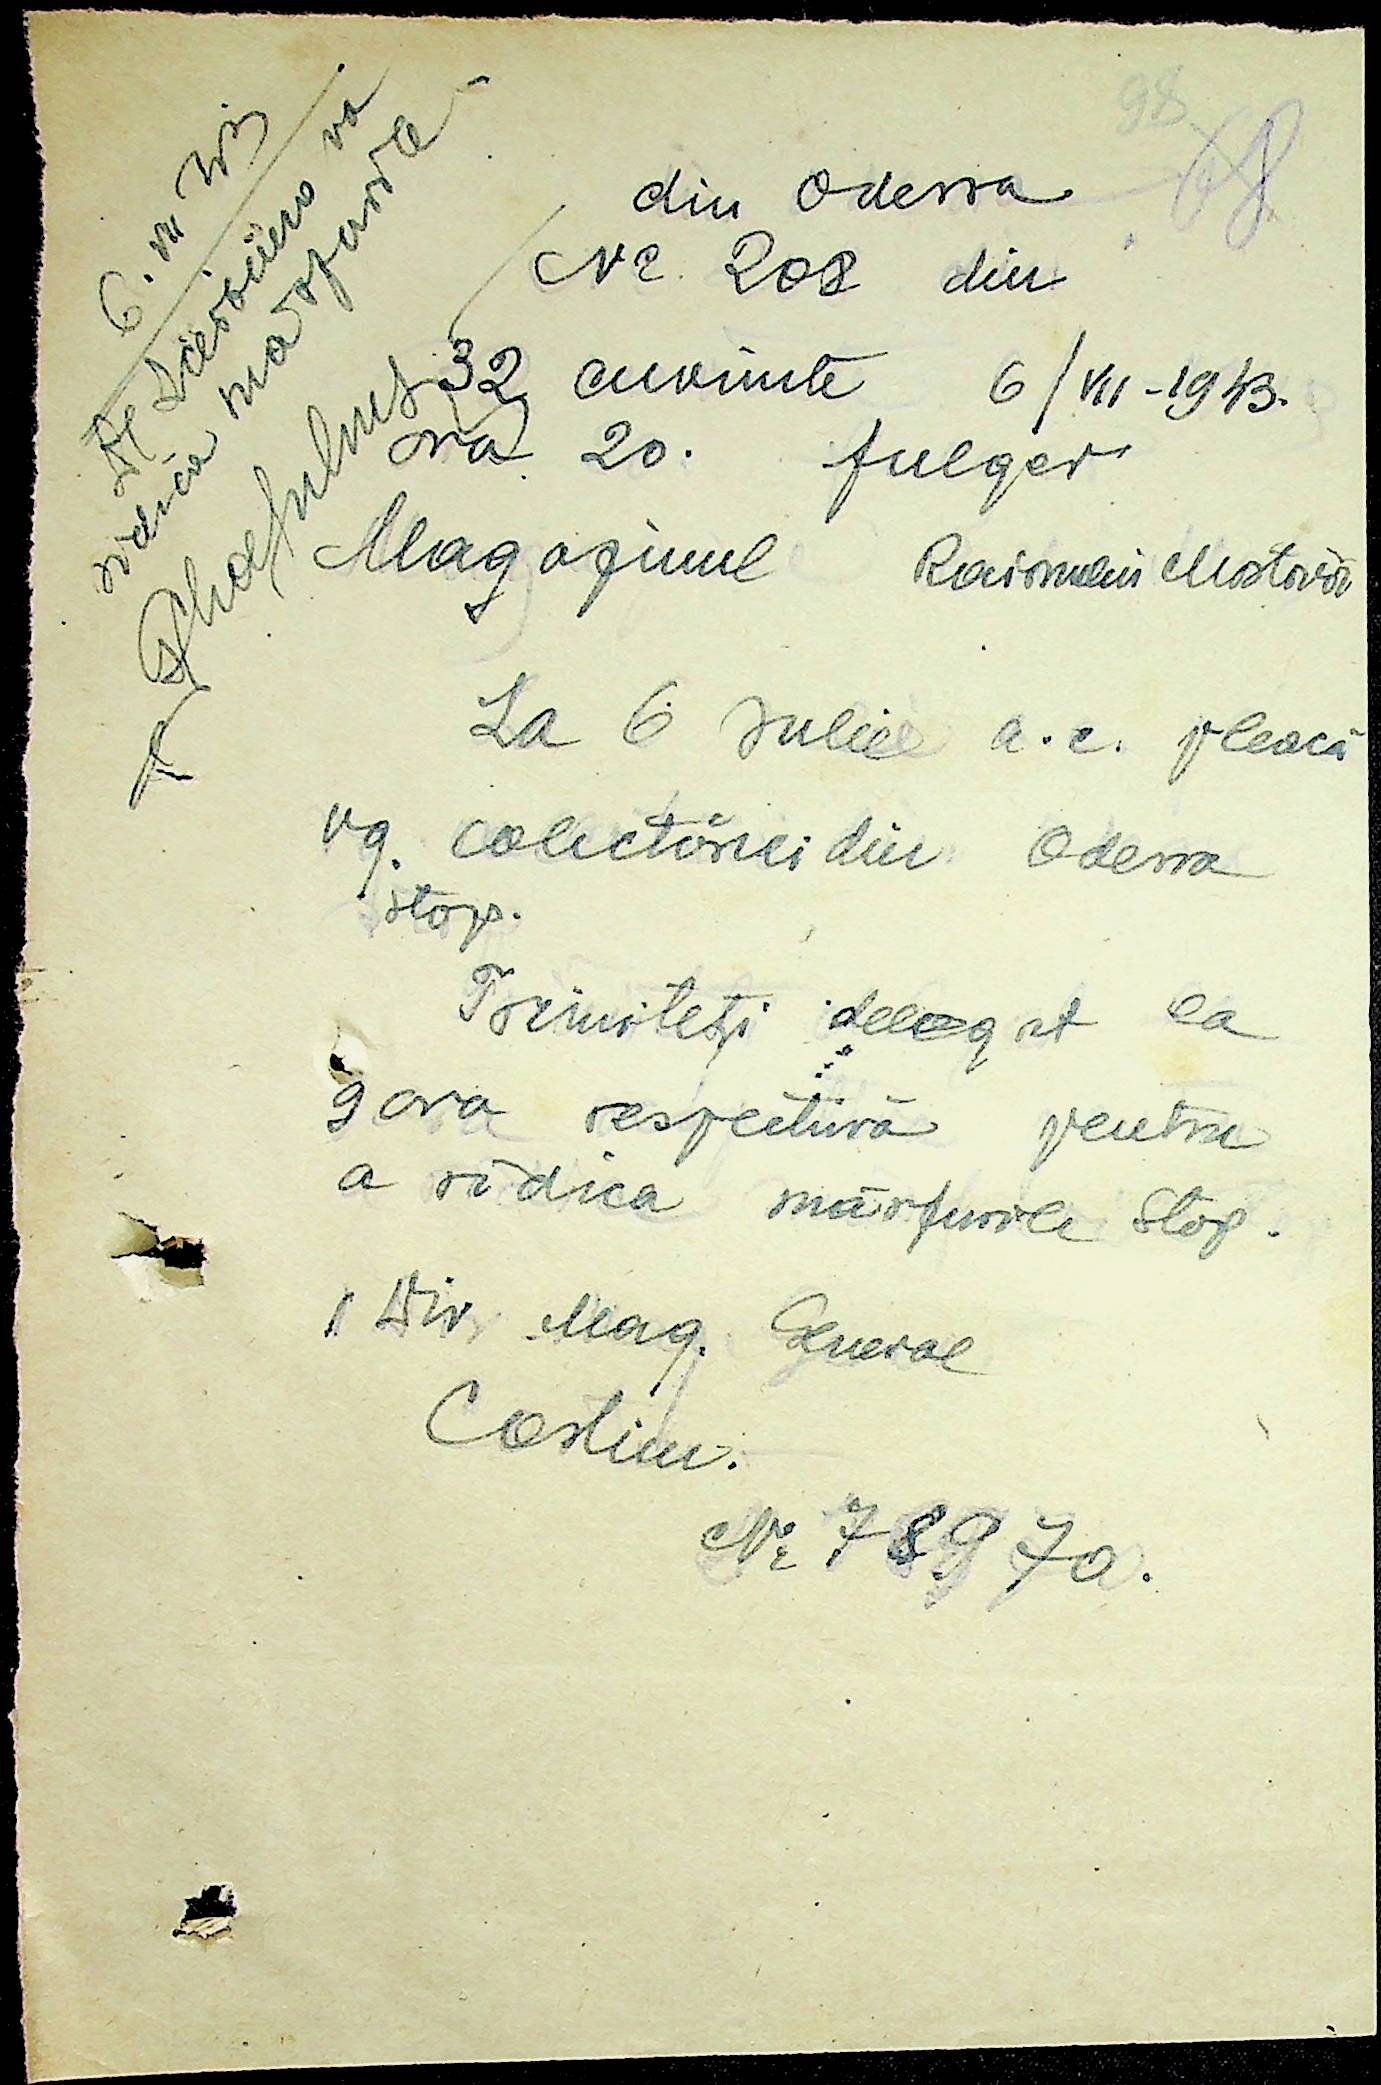 98
din Odessa
Nr. 208 din
32 cuvinte 6/VII-1943.
ora 20. fulger
Magazinul Raionului Mostovoi
La 6 Iulie a.c. pleacă
vg. colectorii din Odessa
stop.
Trimiteți delegat la
gara respectivă pentru
a ridica mărfurile Stop.
Dir. Mag. General
Costin.
Nr. 78970.
6. VII
va
ridica marfurile